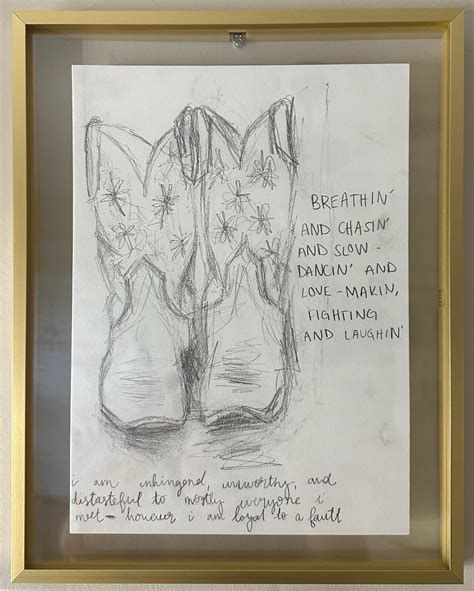 BREATHIN'
AND CHASIN'
AND SLOW-
DANCIN' AND
LOVE-MAKIN,
FIGHTING
AND LAUGHIN'
i am unhingend, unworthy, and
distasteful to mostly everyone i
meet - however i am loyal to a fault